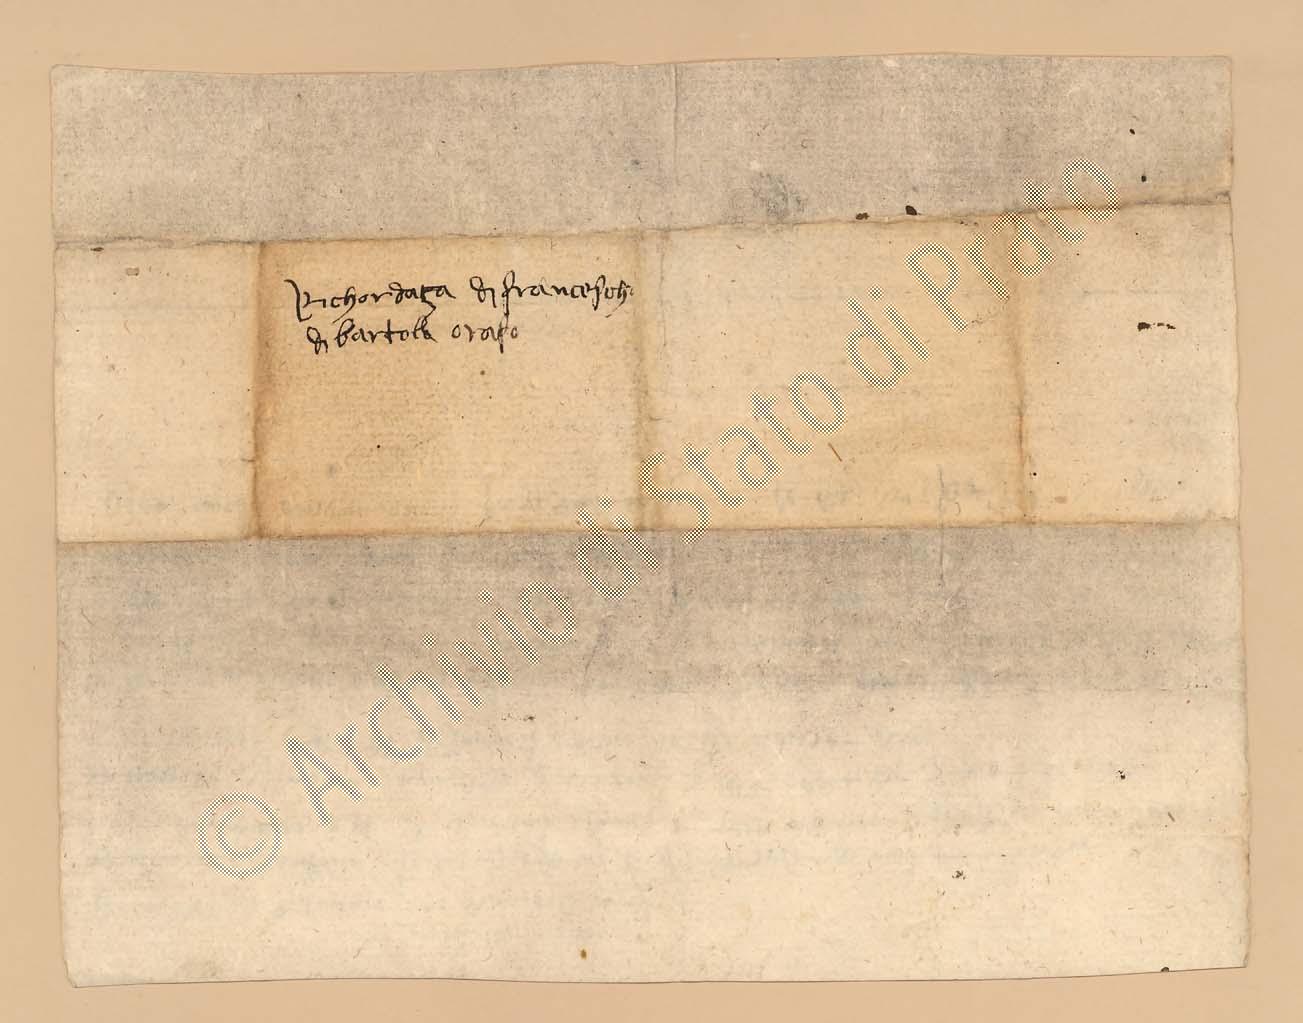 Richordaza di franceschо
di bartolo orafo
© Archivio di Stato di Prato